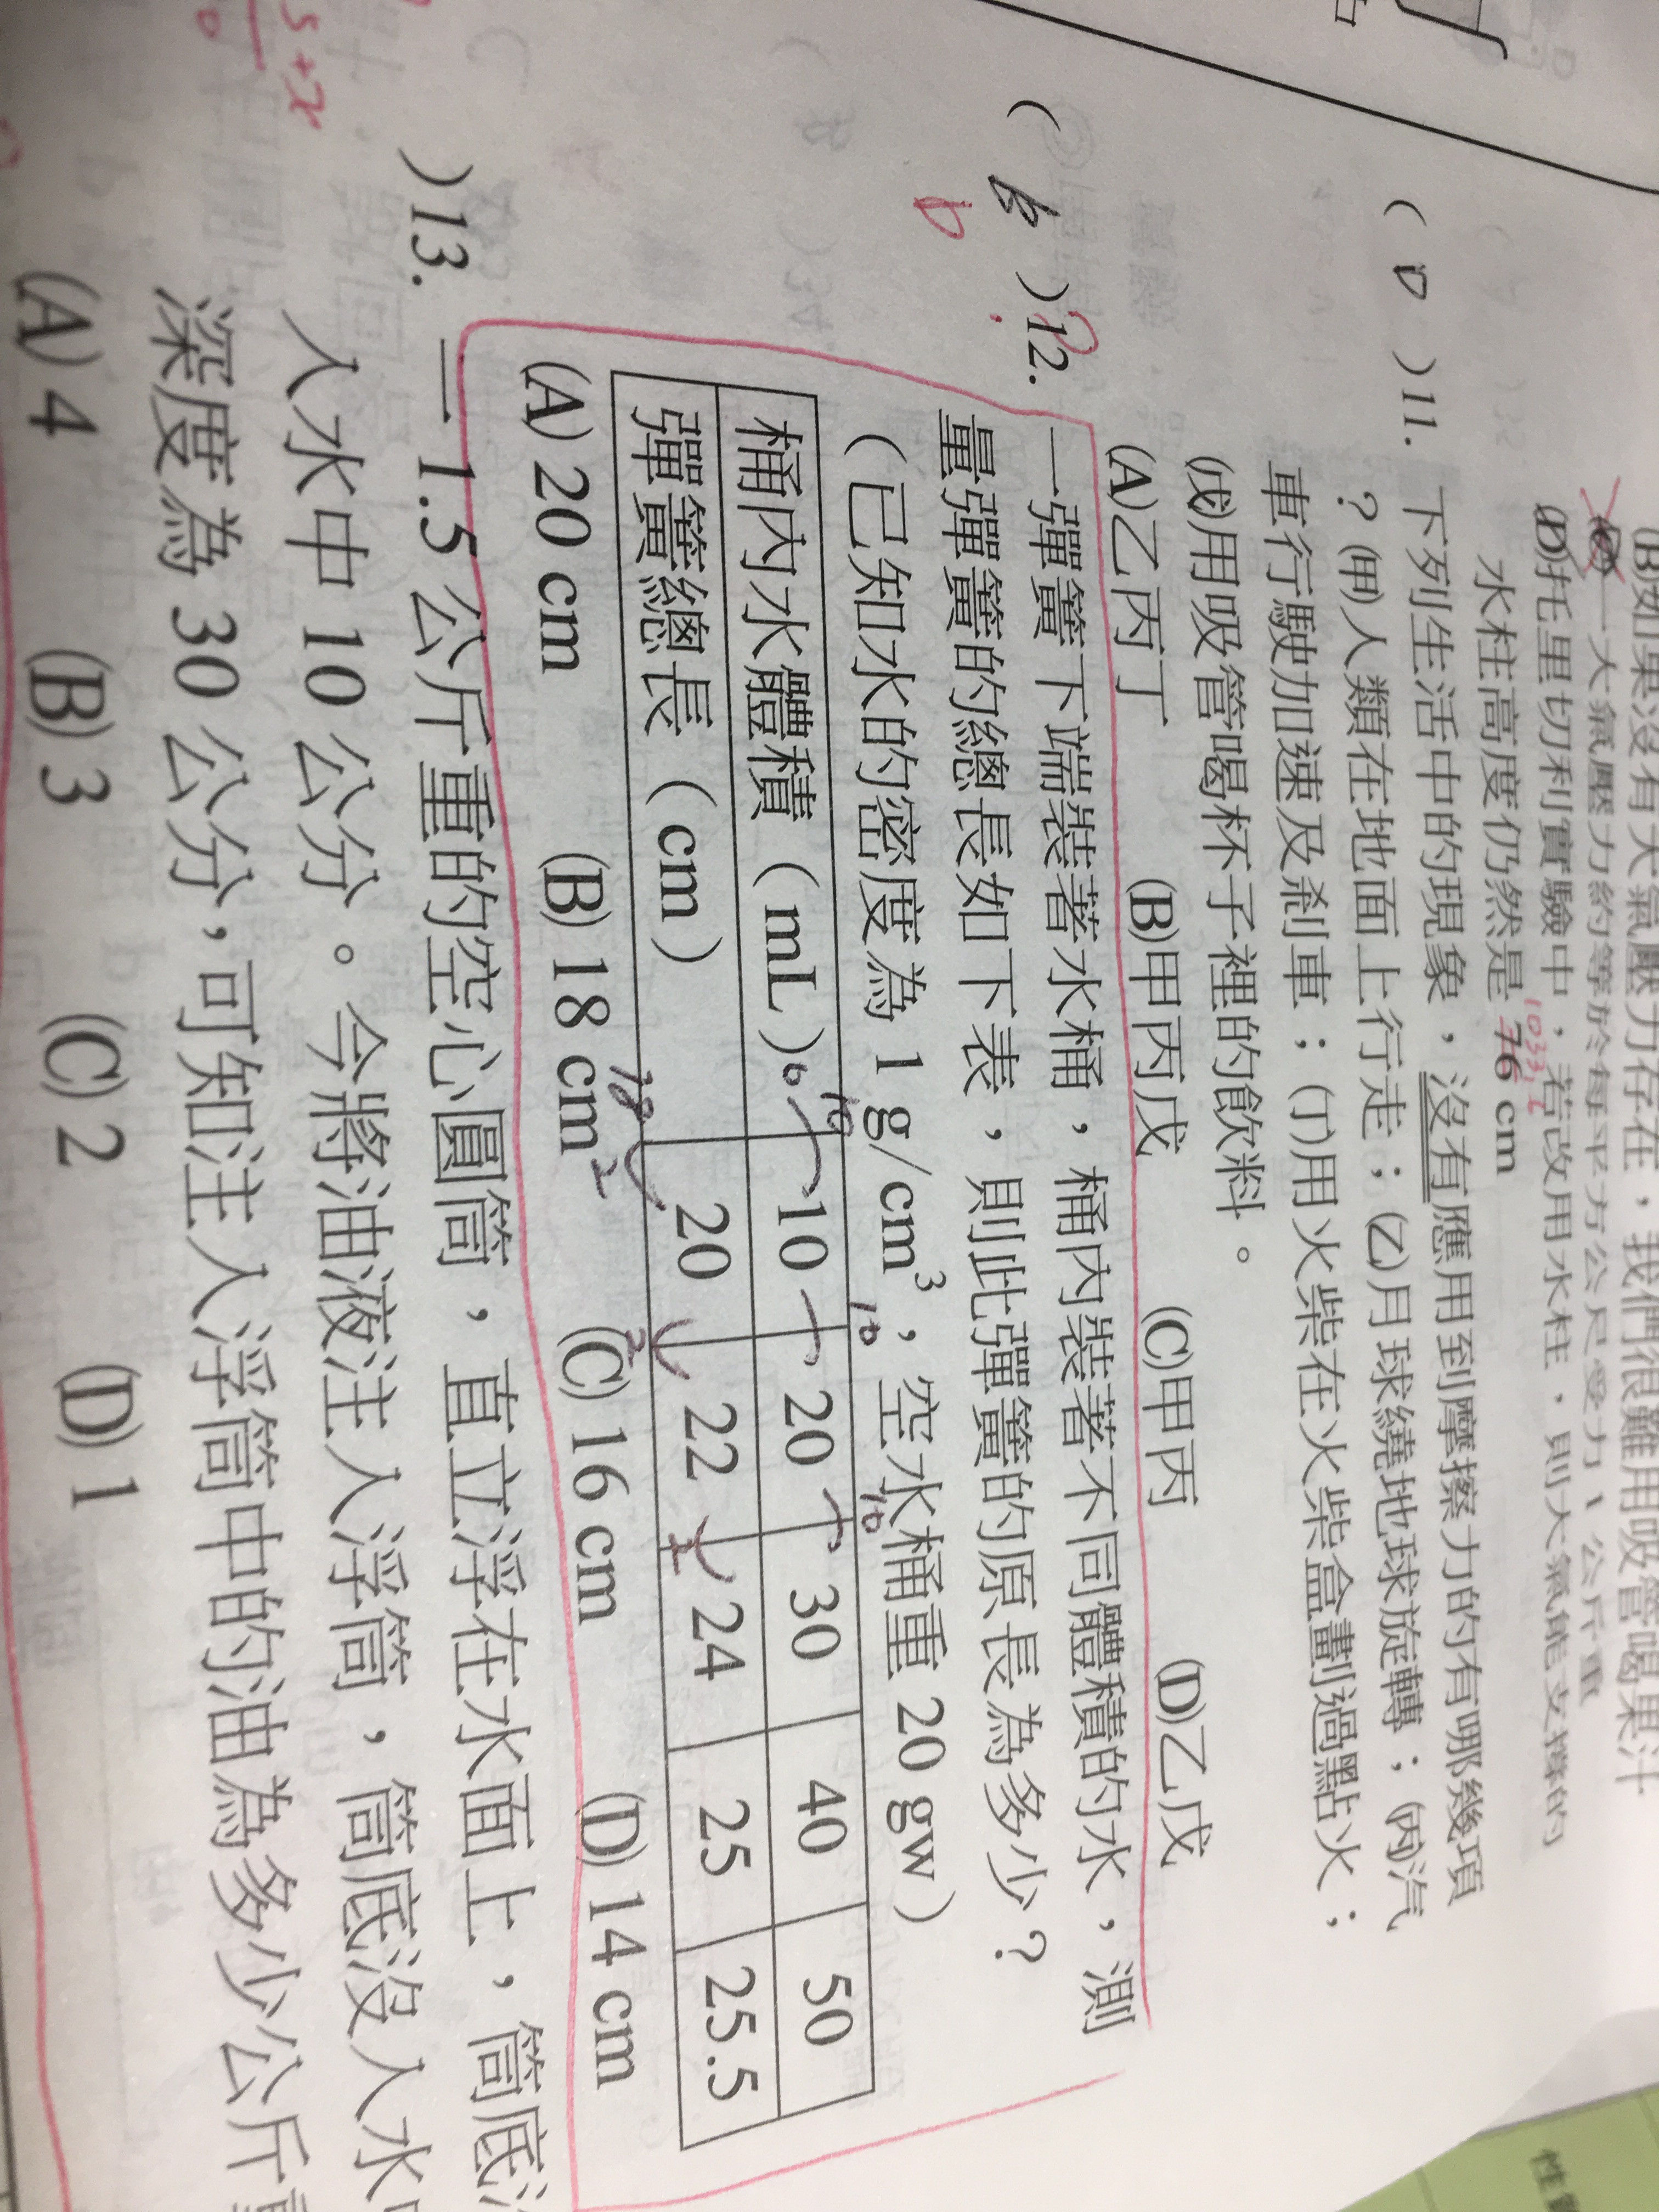 (B)如果沒有大氣壓力存在，我們很難用吸管喝果汁
(C)一大氣壓力約等於每平方公尺受力 1 公斤重
(D)托里切利實驗中，若改用水柱，則大氣能支撐的
水柱高度仍然是 76 cm
1033.6
( D )11. 下列生活中的現象，沒有應用到摩擦力的有哪幾項
？(甲)人類在地面上行走；(乙)月球繞地球旋轉；(丙)汽
車行駛加速及剎車；(丁)用火柴在火柴盒劃過點火；
(戊)用吸管喝杯子裡的飲料。
(A)乙丙丁 (B)甲丙戊 (C)甲丙 (D)乙戊
( B )12. 一彈簧下端裝著水桶，桶內裝著不同體積的水，測
D ?
量彈簧的總長如下表，則此彈簧的原長為多少？
（已知水的密度為 1 g/cm³，空水桶重 20 gw）
10 10 10
桶內水體積（mL） 0 10 20 30 40 50
彈簧總長（cm） 20 22 24 25 25.5
18 2 2 2
(A) 20 cm (B) 18 cm (C) 16 cm (D) 14 cm
)13. 一 1.5 公斤重的空心圓筒，直立浮在水面上，筒底沒
入水中 10 公分。今將油液注入浮筒，筒底沒入水
深度為 30 公分，可知注入浮筒中的油為多少公斤
(A) 4 (B) 3 (C) 2 (D) 1
5+x